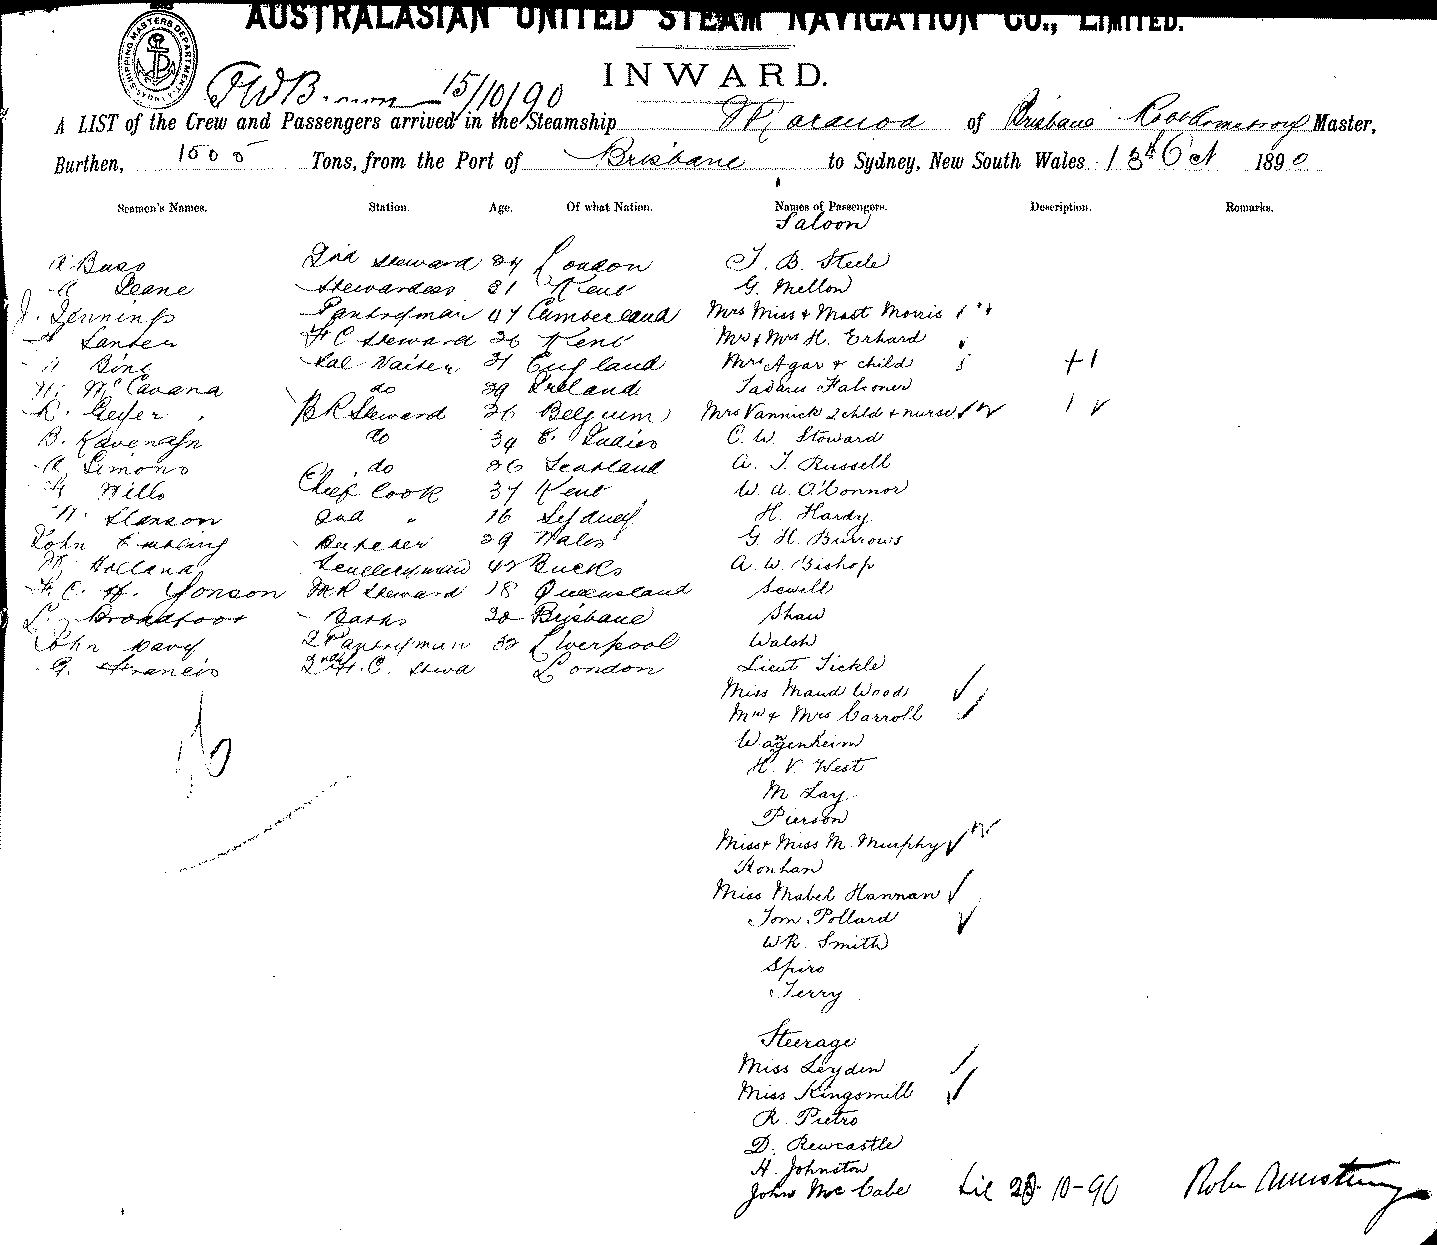 AUSTRALASIAN UNITED STEAM NAVIGATION CO., LIMITED.
SHIPPING MASTERS DEPARTMENT SYDNEY
INWARD.
15/10/90
A LIST of the Crew and Passengers arrived in the Steamship Maranoa of Brisbane Robt Armstrong Master,
Burthen, 1505 Tons, from the Port of Brisbane to Sydney, New South Wales 13th Oct 1890
Seamen's Names. Station. Age. Of what Nation. Names of Passengers. Description. Remarks.
Saloon
A Buss 2nd Steward 34 London J. B. Steele
Deane Stewardess 31 Kent G. Mellon
J. Jennings Pantryman 47 Cumberland Mrs Miss & Mast Morris
F C Steward 26 Kent Mr & Mrs H. Erhard
Sal Waiter 31 England Mrs Agar & child +1
W. McCavana do 29 Ireland Falconer
R. Geyer BR Steward 26 Belgium Mrs Vannick 2 child & nurse 1
B. Kavenagh do 34 E. Indies C. W. Stoward
A Simons do 26 Scotland A. J. Russell
Wills Chief Cook 37 Kent W. A. O'Connor
Hanson 2nd " 16 Sydney H. Hardy
John Butcher 29 Wales G. H. Burrows
Holland Sculleryman 42 Bucks A. W. Bishop
F. C. H. Yonson MR Steward 18 Queensland Sewell
Broadfoot Baths 20 Brisbane Shaw
John Davy 2 Pantryman 32 Liverpool Walsh
G. Francis 2nd F. C. Stewd London Lieut Tickle
Miss Maud Wood
Mr & Mrs Carroll
Wagenheim
H. V. West
M Lay
Pierson
Miss & Miss M. Murphy
Miss Mabel Hannan
Tom Pollard
W R. Smith
Spiro
Terry
Steerage
Miss Leyden
Miss Kingsmill
R. Pietro
D. Newcastle
H. Johnston
John McCabe 10-90 Robt Armstrong